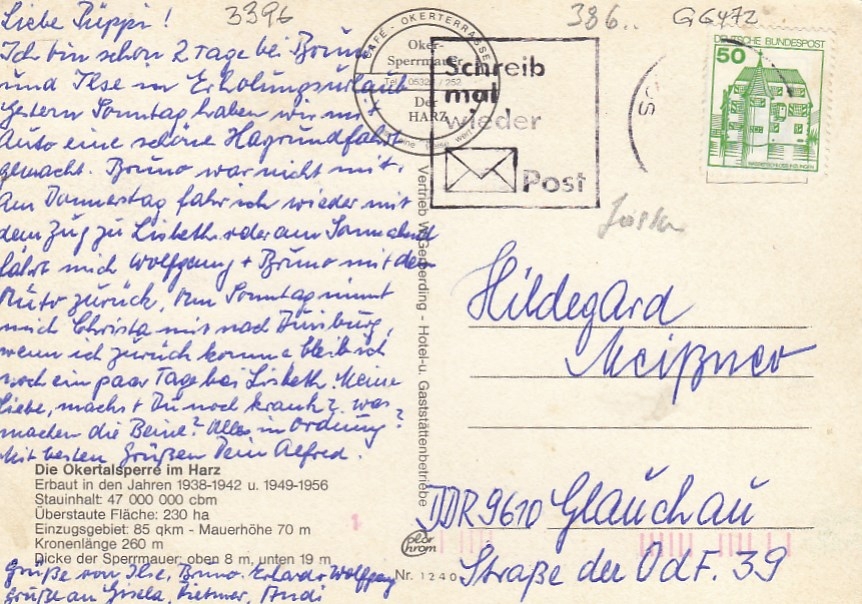 3396
386..
GG472
Liebe Püppi!
Ich bin schon 2 Tage bei Bruno
und Ilse in Erholungsurlaub
gestern Sonntag haben wir mit
Auto eine schöne Harzrundfahrt
gemacht. Bruno war nicht mit.
Am Donnerstag fahr ich wieder mit
dem Zug zu Lisbeth oder am Sonnabend
fährt mich Wolfgang + Bruno mit dem
Auto zurück. Am Sonntag nimmt
mich Christa mit nach Duisburg,
wenn ich zurück komme bleib ich
noch ein paar Tage bei Lisbeth. Meine
Liebe, machst Du noch krank? was
machen die Beine? Alles in Ordnung?
Mit besten Grüßen Dein Alfred.
Die Okertalsperre im Harz
Erbaut in den Jahren 1938-1942 u. 1949-1956
Stauinhalt: 47 000 000 cbm
Überstaute Fläche: 230 ha
Einzugsgebiet: 85 qkm - Mauerhöhe 70 m
Kronenlänge 260 m
Dicke der Sperrmauer: oben 8 m, unten 19 m
Grüße von Ilse, Bruno, Erhard + Wolfgang
grüße an Gisela, Dietmar, Andi
CAFÉ - OKERTERRASSE
Oker-
Sperrmauer
Tel. 05329 / 252
Der
HARZ
Schreib
mal
wieder
Post
DEUTSCHE BUNDESPOST
50
WASSERSCHLOSS INZLINGEN
Vertrieb W. Gerberding - Hotel-u. Gaststättenbetriebe
Hildegard
Meißner
DDR 9610 Glauchau
Straße der OdF. 39
Nr. 1240